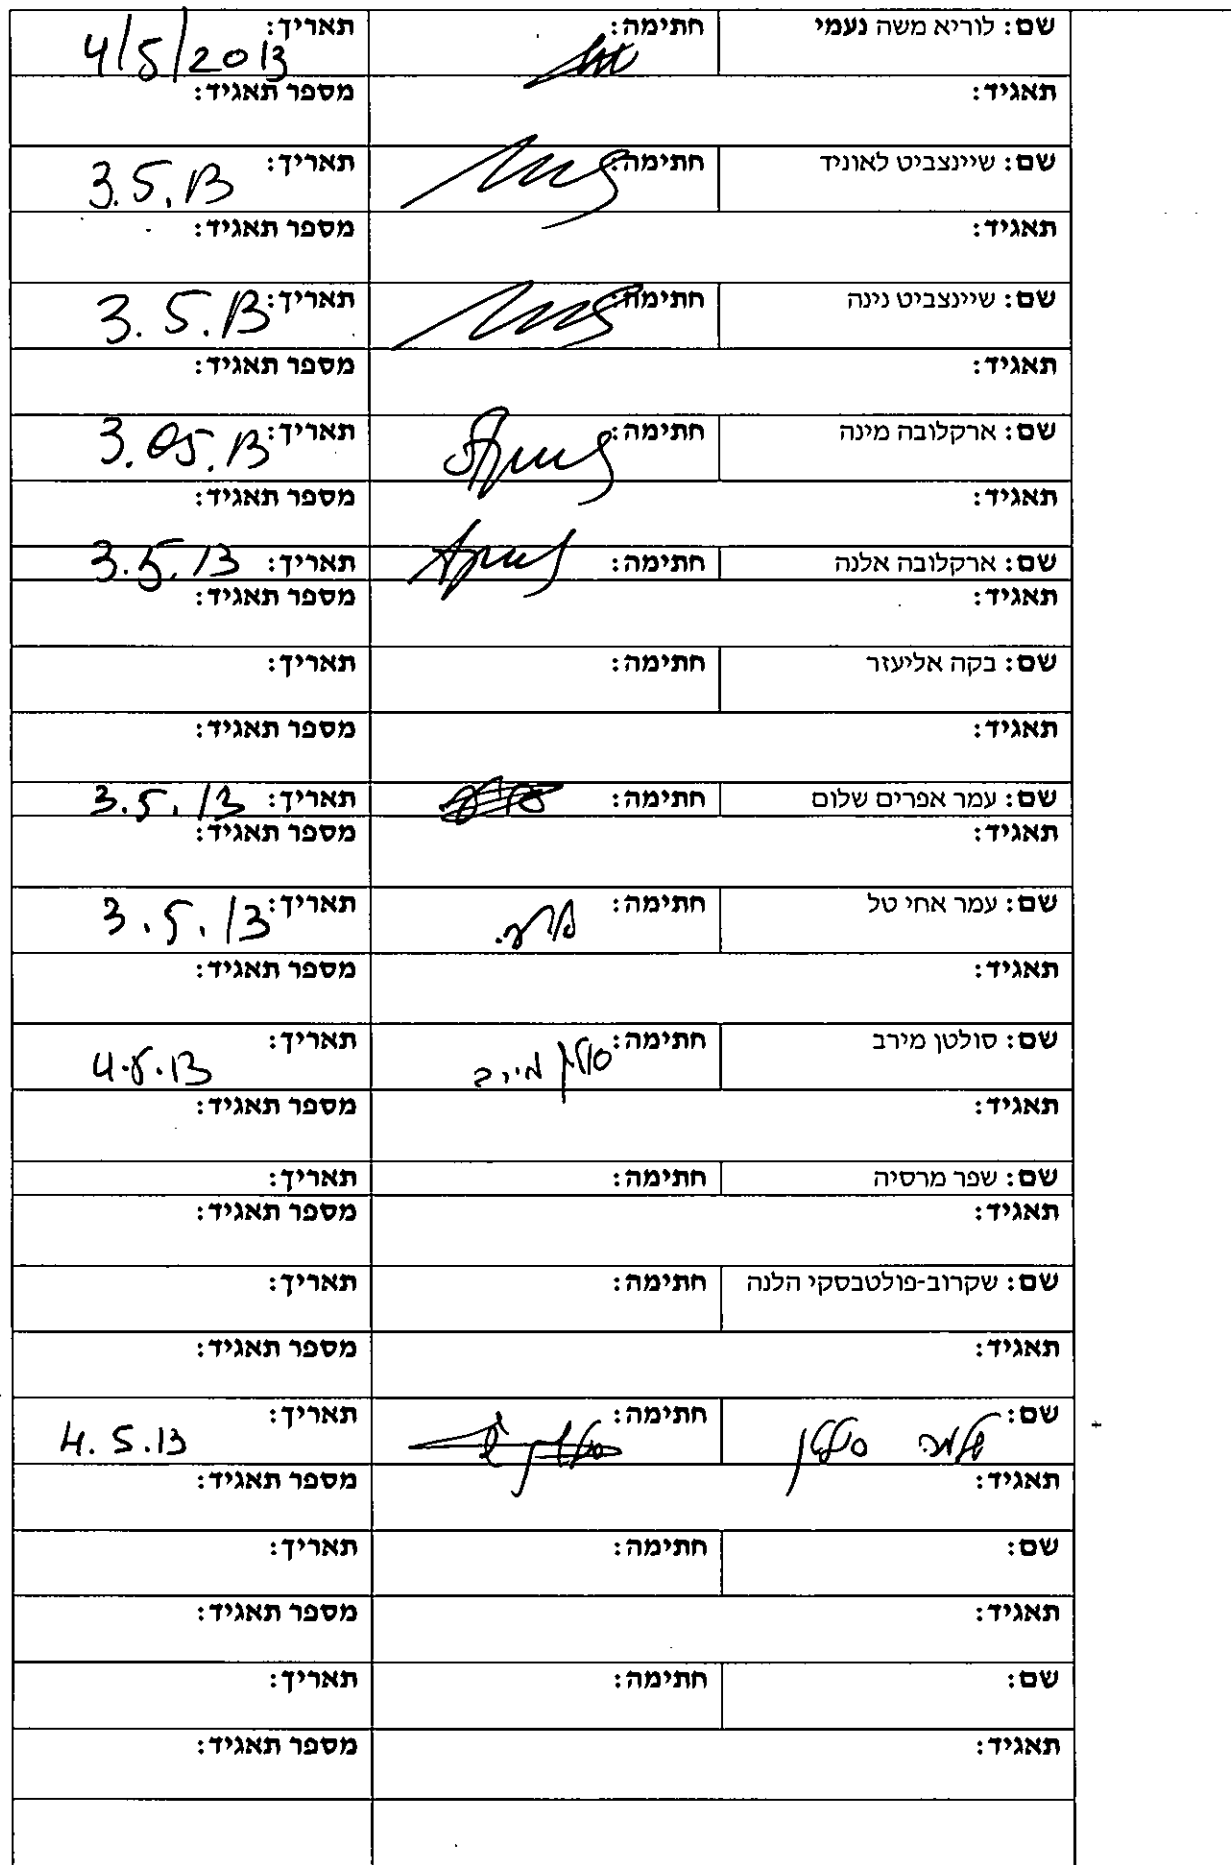 שם: לוריא משה נעמי חתימה: תאריך: 4/5/2013
תאגיד: מספר תאגיד:
שם: שיינצביט לאוניד חתימה: תאריך: 3.5.13
תאגיד: מספר תאגיד:
שם: שיינצביט נינה חתימה: תאריך: 3.5.13
תאגיד: מספר תאגיד:
שם: ארקלובה מינה חתימה: תאריך: 3.05.13
תאגיד: מספר תאגיד:
שם: ארקלובה אלנה חתימה: תאריך: 3.5.13
תאגיד: מספר תאגיד:
שם: בקה אליעזר חתימה: תאריך:
תאגיד: מספר תאגיד:
שם: עמר אפרים שלום חתימה: תאריך: 3.5.13
תאגיד: מספר תאגיד:
שם: עמר אחי טל חתימה: תאריך: 3.5.13
תאגיד: מספר תאגיד:
שם: סולטן מירב חתימה: סולטן מירב תאריך: 4.5.13
תאגיד: מספר תאגיד:
שם: שפר מרסיה חתימה: תאריך:
תאגיד: מספר תאגיד:
שם: שקרוב-פולטבסקי הלנה חתימה: תאריך:
תאגיד: מספר תאגיד:
שם: שלמה סולטן חתימה: תאריך: 4.5.13
תאגיד: מספר תאגיד:
שם: חתימה: תאריך:
תאגיד: מספר תאגיד:
שם: חתימה: תאריך:
תאגיד: מספר תאגיד: